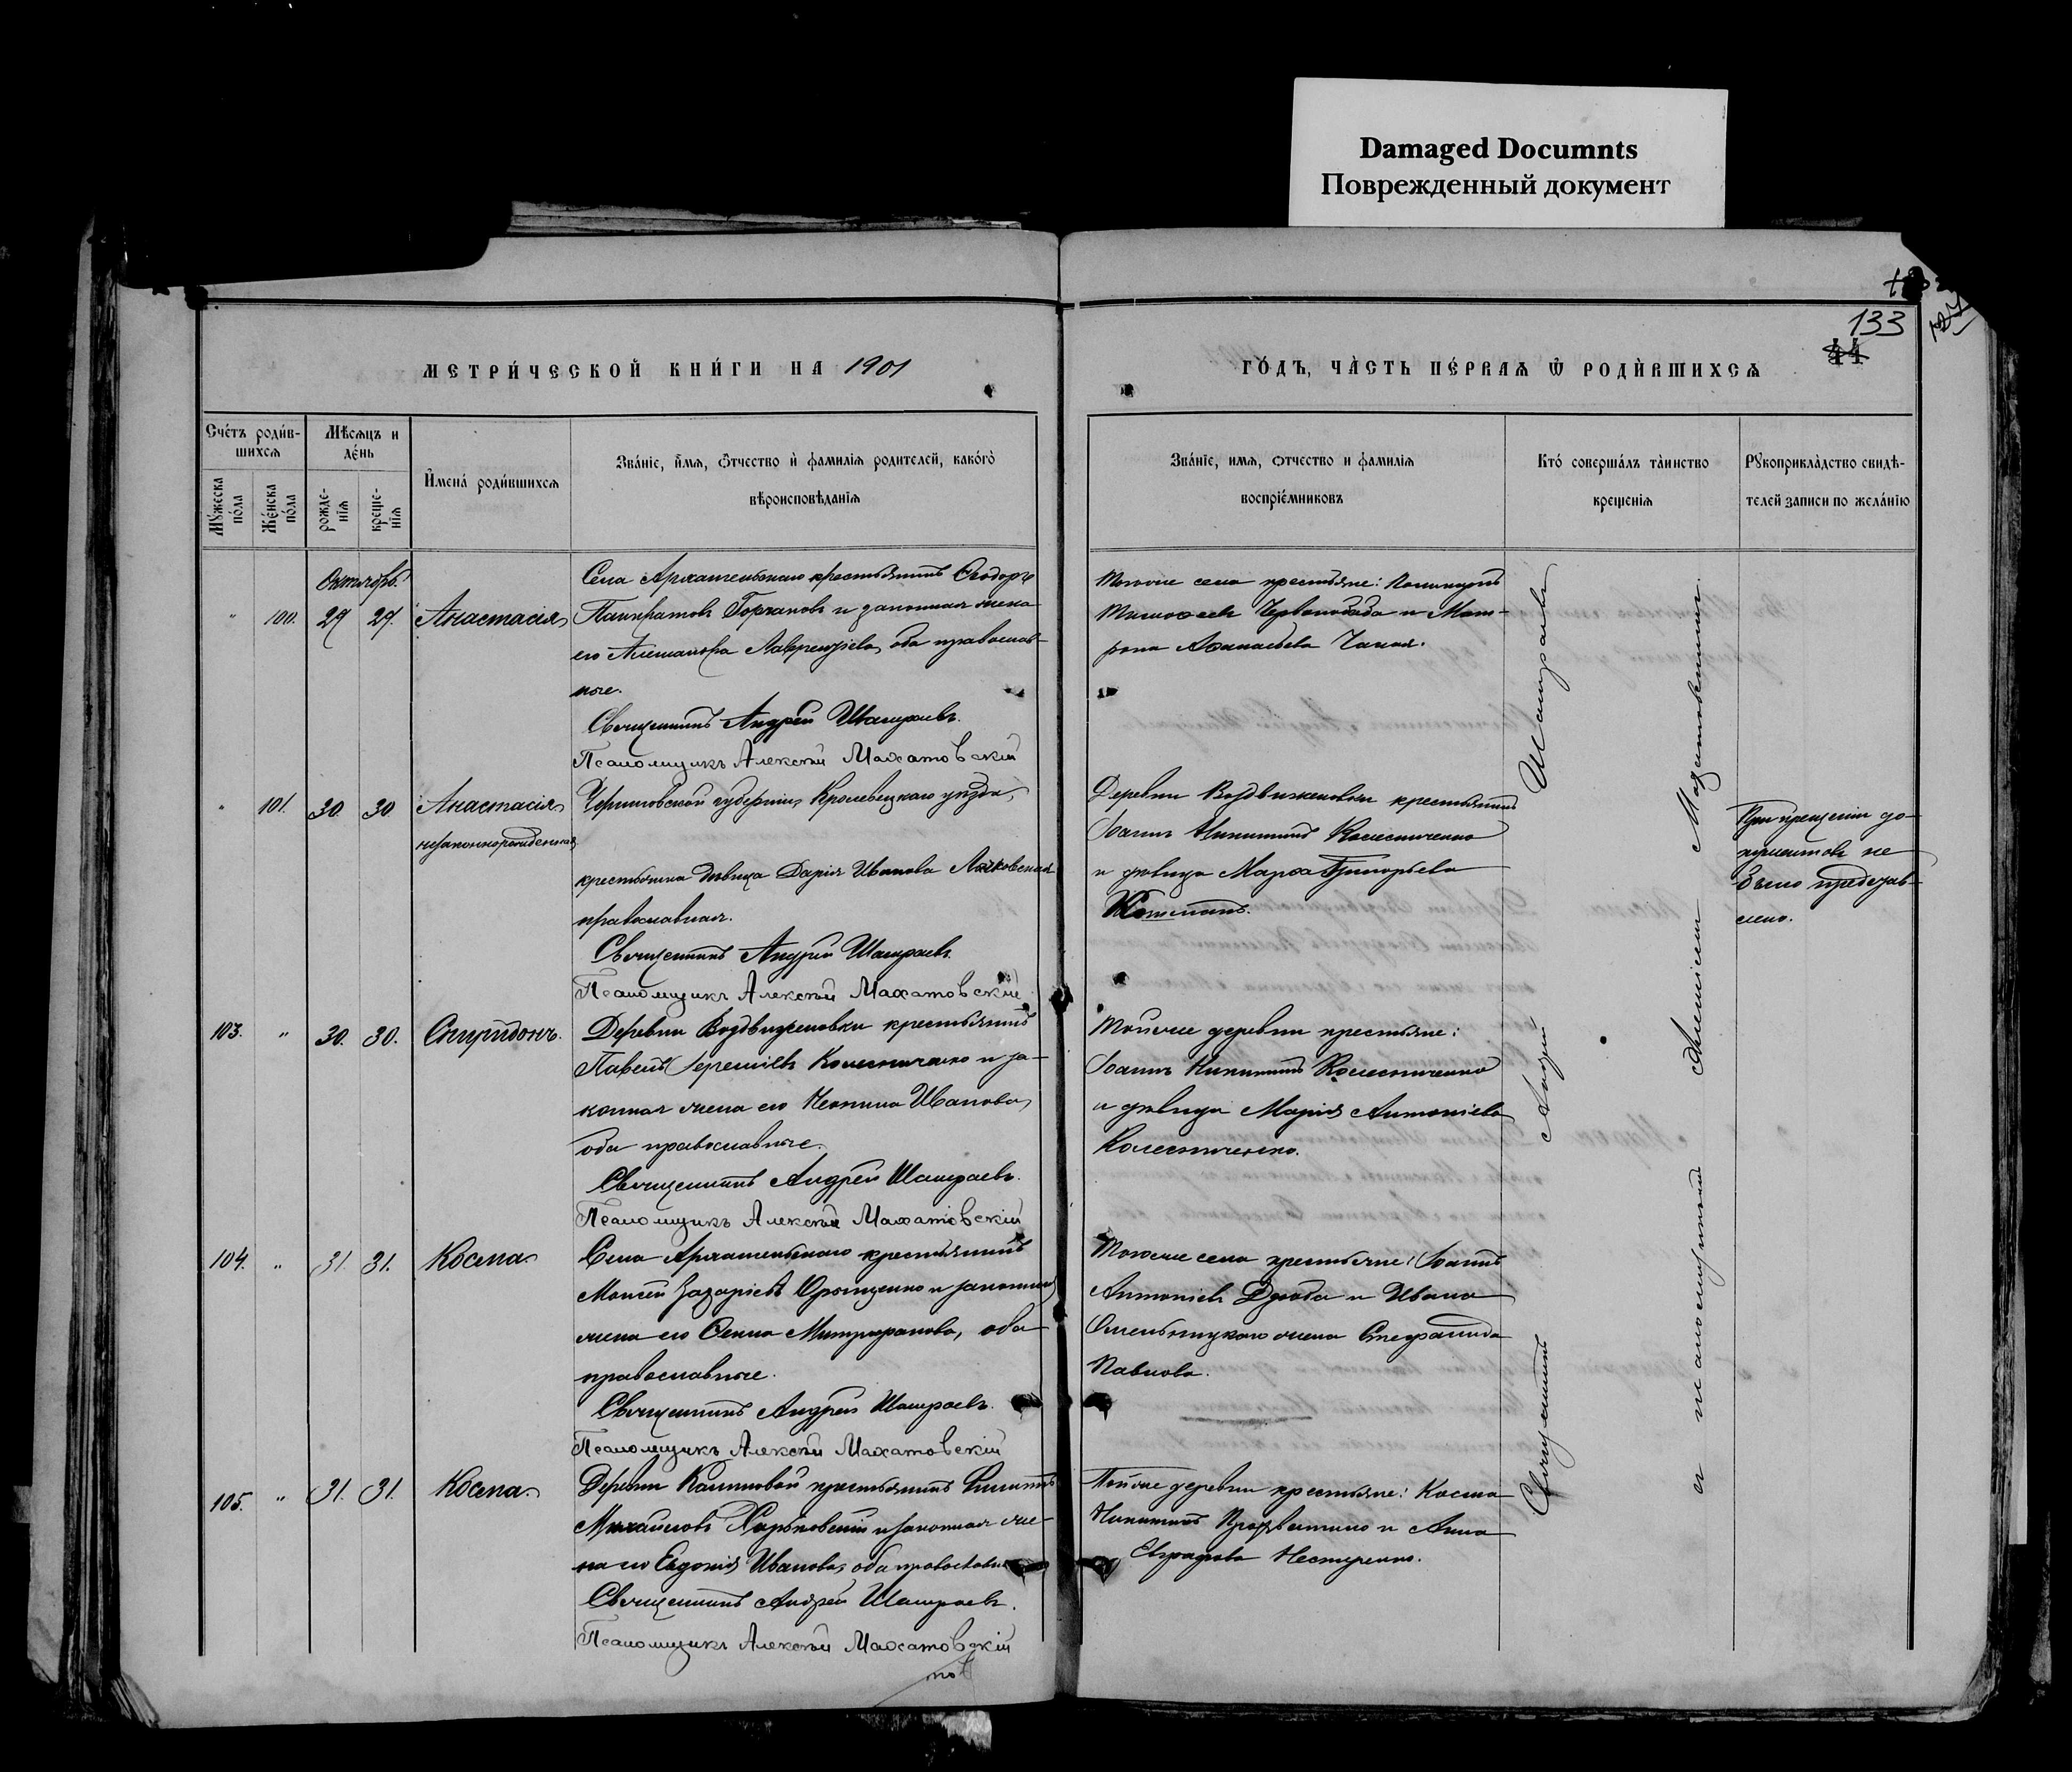 Damaged Documnts
Поврежденный документ
133
44
127
МЕТРИ́ЧЕСКОЙ КНИ́ГИ НА 1901
ГО́ДЪ, ЧА̀СТЬ ПЕ́РВАѦ Ѿ РОДИ́ВШИХСѦ
Сче́тъ роди́в-
шихсѧ
Мꙋ́жеска по́ла
Же́нска по́ла
Мѣ́сѧцъ и де́нь
рожде-
нїѧ
креще-
нїѧ
И҆мена̀ роди́вшихсѧ
Зва́нїе, и҆́мѧ, ѻ҆́тчество и҆ фами́лїѧ родителей, како́гѡ
вѣроисповѣ́данїѧ
Зва́нїе, имѧ, ѻтчество и фамилїѧ
воспрїе́мниковъ
Кто́ соверша́лъ та́инство
крещенїѧ
Рꙋкоприкла̀дство свидѣ-
телей записи по жела́нїю
Октябрь.
" 100. 29 29. Анастасія
Села Архангельскаго крестьянинъ Ѳеодоръ
Панкратовъ Горчаковъ и законная жена
его Александра Лаврентіева, оба православ-
ные.
Священникъ Андрей Шашраевъ.
Псаломщикъ Алексѣй Махатовскій
Тогоже села крестьяне:
Тимоѳеевъ Червонобаба и Мат-
рона Аѳанасьева Чалая.
" 101. 30. 30 Анастасія
незаконнорожденная
Черниговской губерніи, Кролевецкаго уѣзда,
крестьянка дѣвица Дарія Иванова
православная.
Священникъ Андрей Шашраевъ.
Псаломщикъ Алексѣй Махатовскій
Деревни Воздвиженовки крестьянинъ
Іоаннъ Никитинъ Колесниченко
и дѣвица Марѳа Григорьева
При крещеніи до-
кументовъ не
было представ-
лено.
103. " 30. 30. Спиридонъ.
Деревни Воздвиженовки крестьянинъ
Павелъ Іереміевъ Колесниченко и за-
конная жена его Неонила Иванова,
оба православные.
Священникъ Андрей Шашраевъ.
Псаломщикъ Алексѣй Махатовскій
Тойже деревни крестьяне:
Іоаннъ Никитинъ Колесниченко
и дѣвица Марія Антоніева
Колесниченко.
104. " 31. 31. Косма.
Села Архангельскаго крестьянинъ
Моисей Захаріевъ Орищенко и законная
жена его Ѳекла Митрофанова, оба
православные.
Священникъ Андрей Шашраевъ.
Псаломщикъ Алексѣй Махатовскій
Тогоже села крестьяне: Іоаннъ
Антоніевъ Дзюба и Ивана
Омельницкаго жена Стефанида
Павлова.
105. " 31. 31. Косма.
Деревни Калиновой крестьянинъ Филиппъ
Михайловъ Харьковскій и законная же-
на его Евдокія Иванова, оба православн
Священникъ Андрей Шашраевъ.
Псаломщикъ Алексѣй Махатовскій
Тойже деревни крестьяне: Косма
Никитинъ и Анна
Евграфова Нестеренко.
Священникъ Андрей Шашраевъ
и псаломщикъ Алексѣй Махатовскій